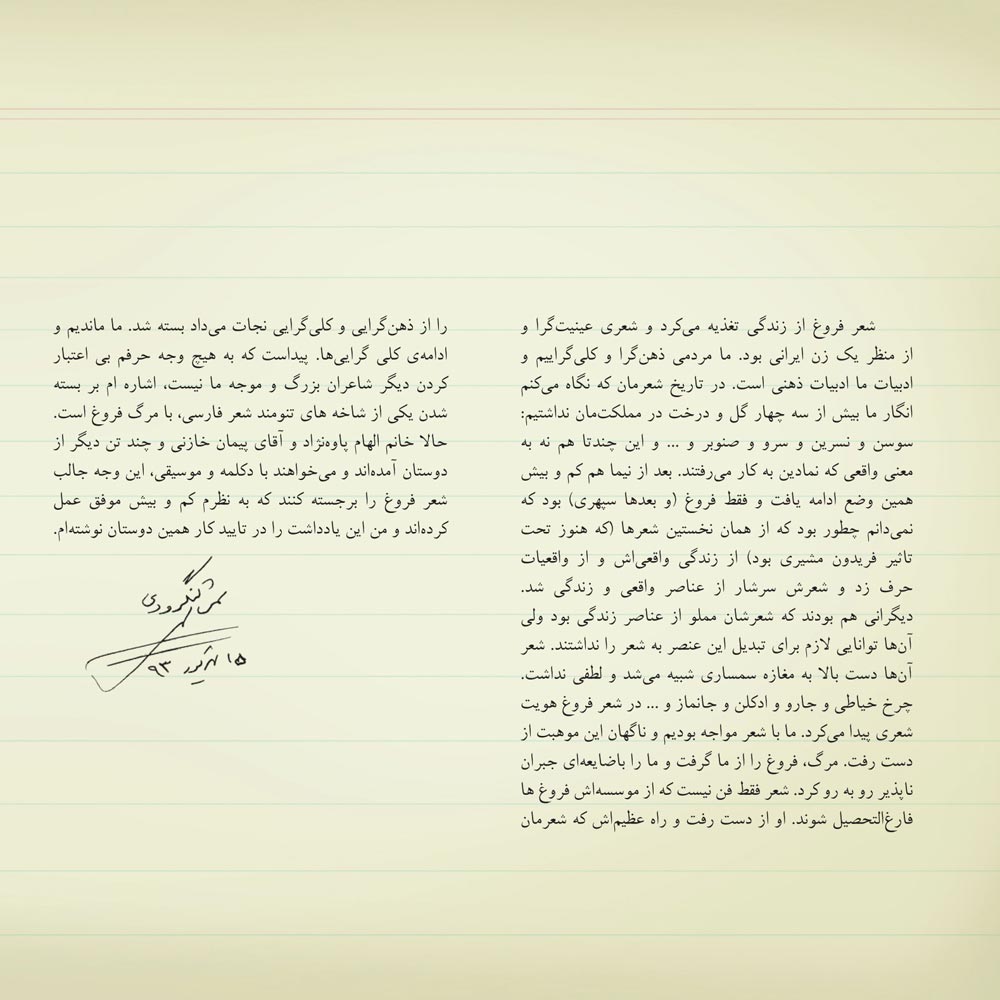 شعر فروغ از زندگی تغذیه می‌کرد و شعری عینیت‌گرا و
از منظر یک زن ایرانی بود. ما مردمی ذهن‌گرا و کلی‌گراییم و
ادبیات ما ادبیات ذهنی است. در تاریخ شعرمان که نگاه می‌کنم
انگار ما بیش از سه چهار گل و درخت در مملکت‌مان نداشتیم:
سوسن و نسرین و سرو و صنوبر و ... و این چندتا هم نه به
معنی واقعی که نمادین به کار می‌رفتند. بعد از نیما هم کم و بیش
همین وضع ادامه یافت و فقط فروغ (و بعدها سپهری) بود که
نمی‌دانم چطور بود که از همان نخستین شعرها (که هنوز تحت
تاثیر فریدون مشیری بود) از زندگی واقعی‌اش و از واقعیات
حرف زد و شعرش سرشار از عناصر واقعی و زندگی شد.
دیگرانی هم بودند که شعرشان مملو از عناصر زندگی بود ولی
آن‌ها توانایی لازم برای تبدیل این عنصر به شعر را نداشتند. شعر
آن‌ها دست بالا به مغازه سمساری شبیه می‌شد و لطفی نداشت.
چرخ خیاطی و جارو و ادکلن و جانماز و ... در شعر فروغ هویت
شعری پیدا می‌کرد. ما با شعر مواجه بودیم و ناگهان این موهبت از
دست رفت. مرگ، فروغ را از ما گرفت و ما را باضایعه‌ای جبران
ناپذیر رو به رو کرد. شعر فقط فن نیست که از موسسه‌اش فروغ ها
فارغ‌التحصیل شوند. او از دست رفت و راه عظیم‌اش که شعرمان
را از ذهن‌گرایی و کلی‌گرایی نجات می‌داد بسته شد. ما ماندیم و
ادامه‌ی کلی گرایی‌ها. پیداست که به هیچ وجه حرفم بی اعتبار
کردن دیگر شاعران بزرگ و موجه ما نیست، اشاره ام بر بسته
شدن یکی از شاخه های تنومند شعر فارسی، با مرگ فروغ است.
حالا خانم الهام پاوه‌نژاد و آقای پیمان خازنی و چند تن دیگر از
دوستان آمده‌اند و می‌خواهند با دکلمه و موسیقی، این وجه جالب
شعر فروغ را برجسته کنند که به نظرم کم و بیش موفق عمل
کرده‌اند و من این یادداشت را در تایید کار همین دوستان نوشته‌ام.
شمس لنگرودی
۱۵ شهریور ۹۳